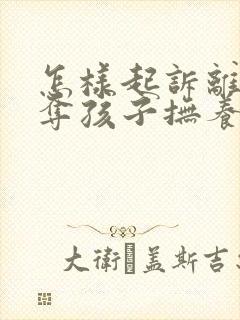 怎樣起訴離
奪孩子撫養
大衛·蓋斯吉